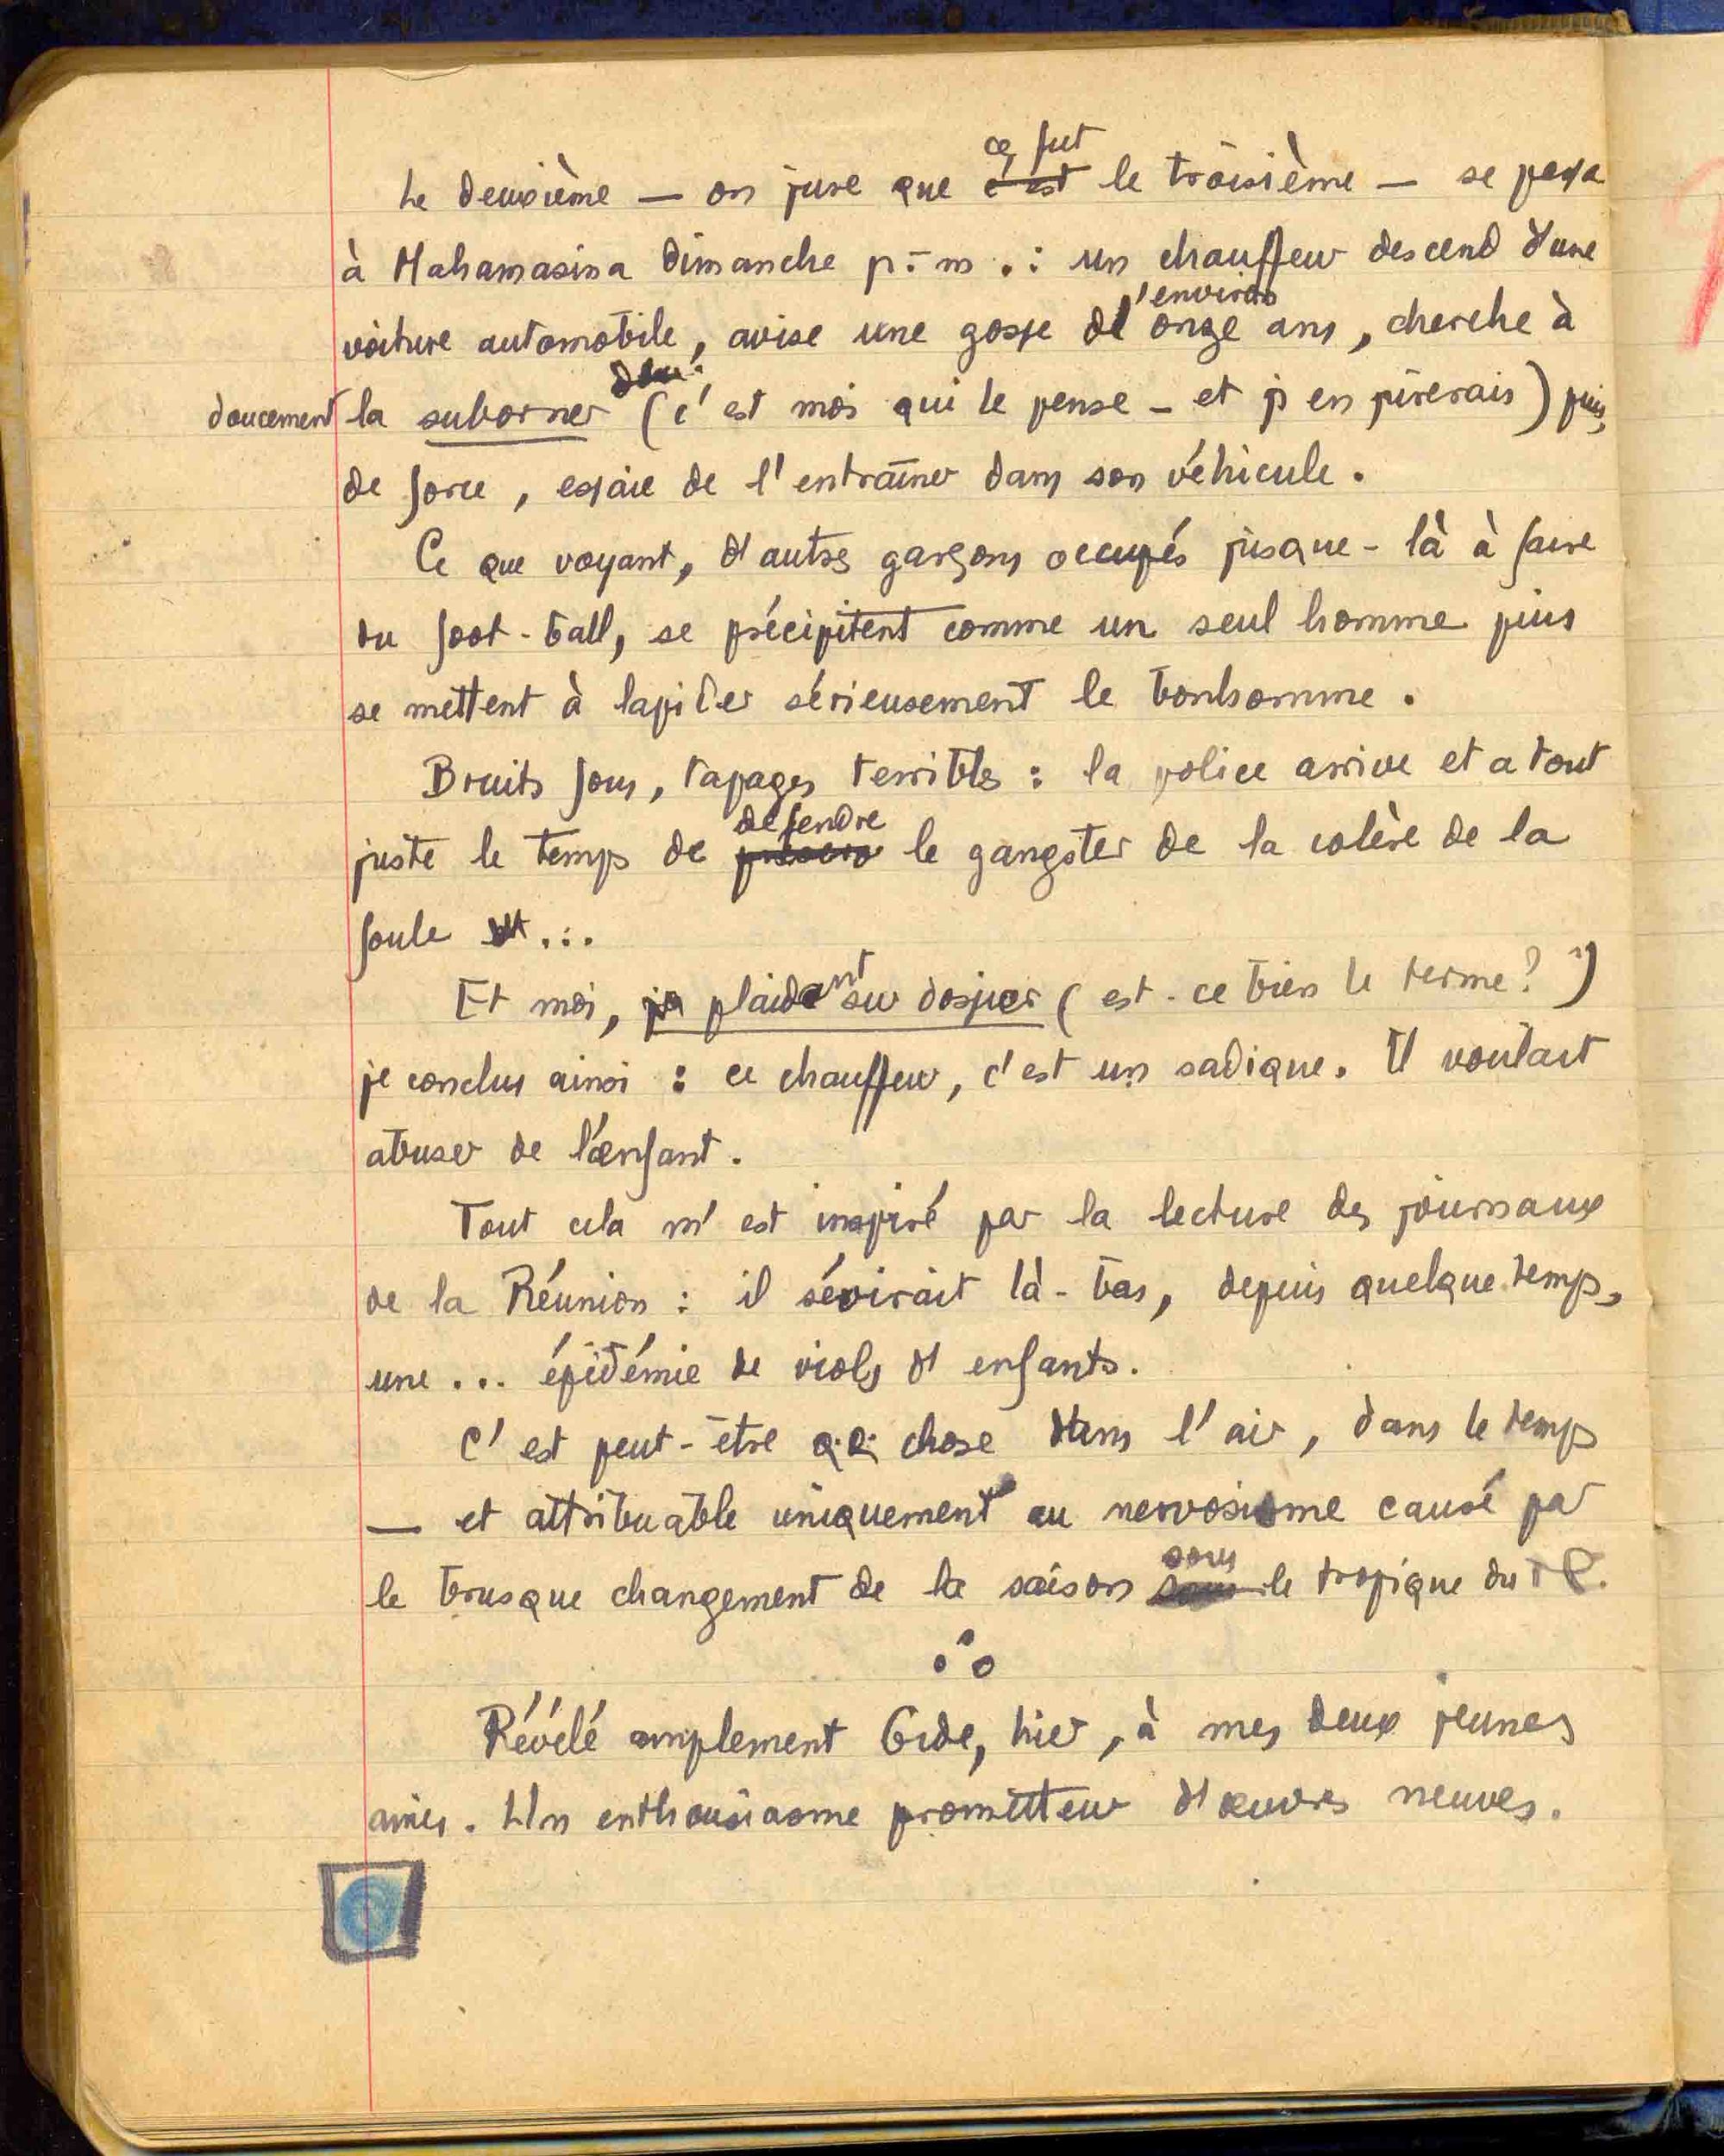 Le deuxième — on jure que ce fut c'est le troisième — se passa
à Mahamasina dimanche p.m. : un chauffeur descend d'une
voiture automobile, avise une gosse d'environ onze ans, cherche à
doucement la suborner (c'est moi qui le pense - et j'en pirerais) puis,
de force, essaie de l'entraîner dans son véhicule.
Ce que voyant, d'autres garçons occupés jusque-là à faire
du foot-ball, se précipitent comme un seul homme puis
se mettent à lapider sérieusement le bonhomme.
Bruits fous, tapages terribles : la police arrive et a tout
juste le temps de défendre le gangster de la colère de la
foule ...
Et moi, plaidant sur dossier (est-ce bien le terme ?)
je conclus ainsi : ce chauffeur, c'est un sadique. Il voulait
abuser de l'enfant.
Tout cela m'est inspiré par la lecture des journaux
de la Réunion : il sévirait là-bas, depuis quelque temps,
une ... épidémie de viols d'enfants.
C'est peut-être q.q. chose dans l'air, dans le temps
— et attribuable uniquement au nervosisme causé par
le brusque changement de la saison sous le tropique du C.
Révélé amplement Gide, hier, à mes deux jeunes
amies. Un enthousiasme prometteur d'œuvres neuves.